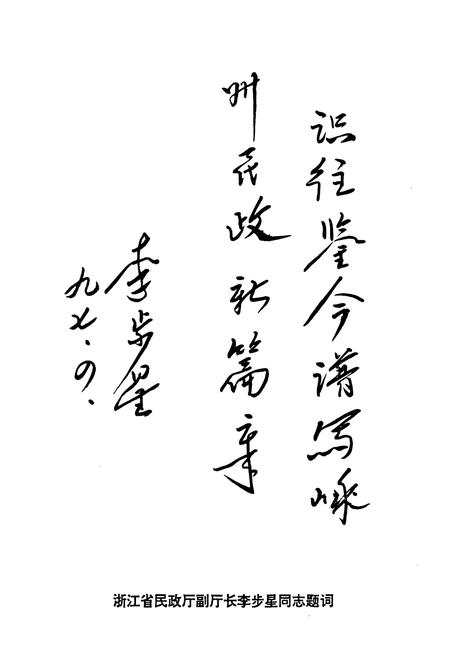 识往鉴今谱写嵊
州民政新篇章
李步星
九七.四.
浙江省民政厅副厅长李步星同志题词